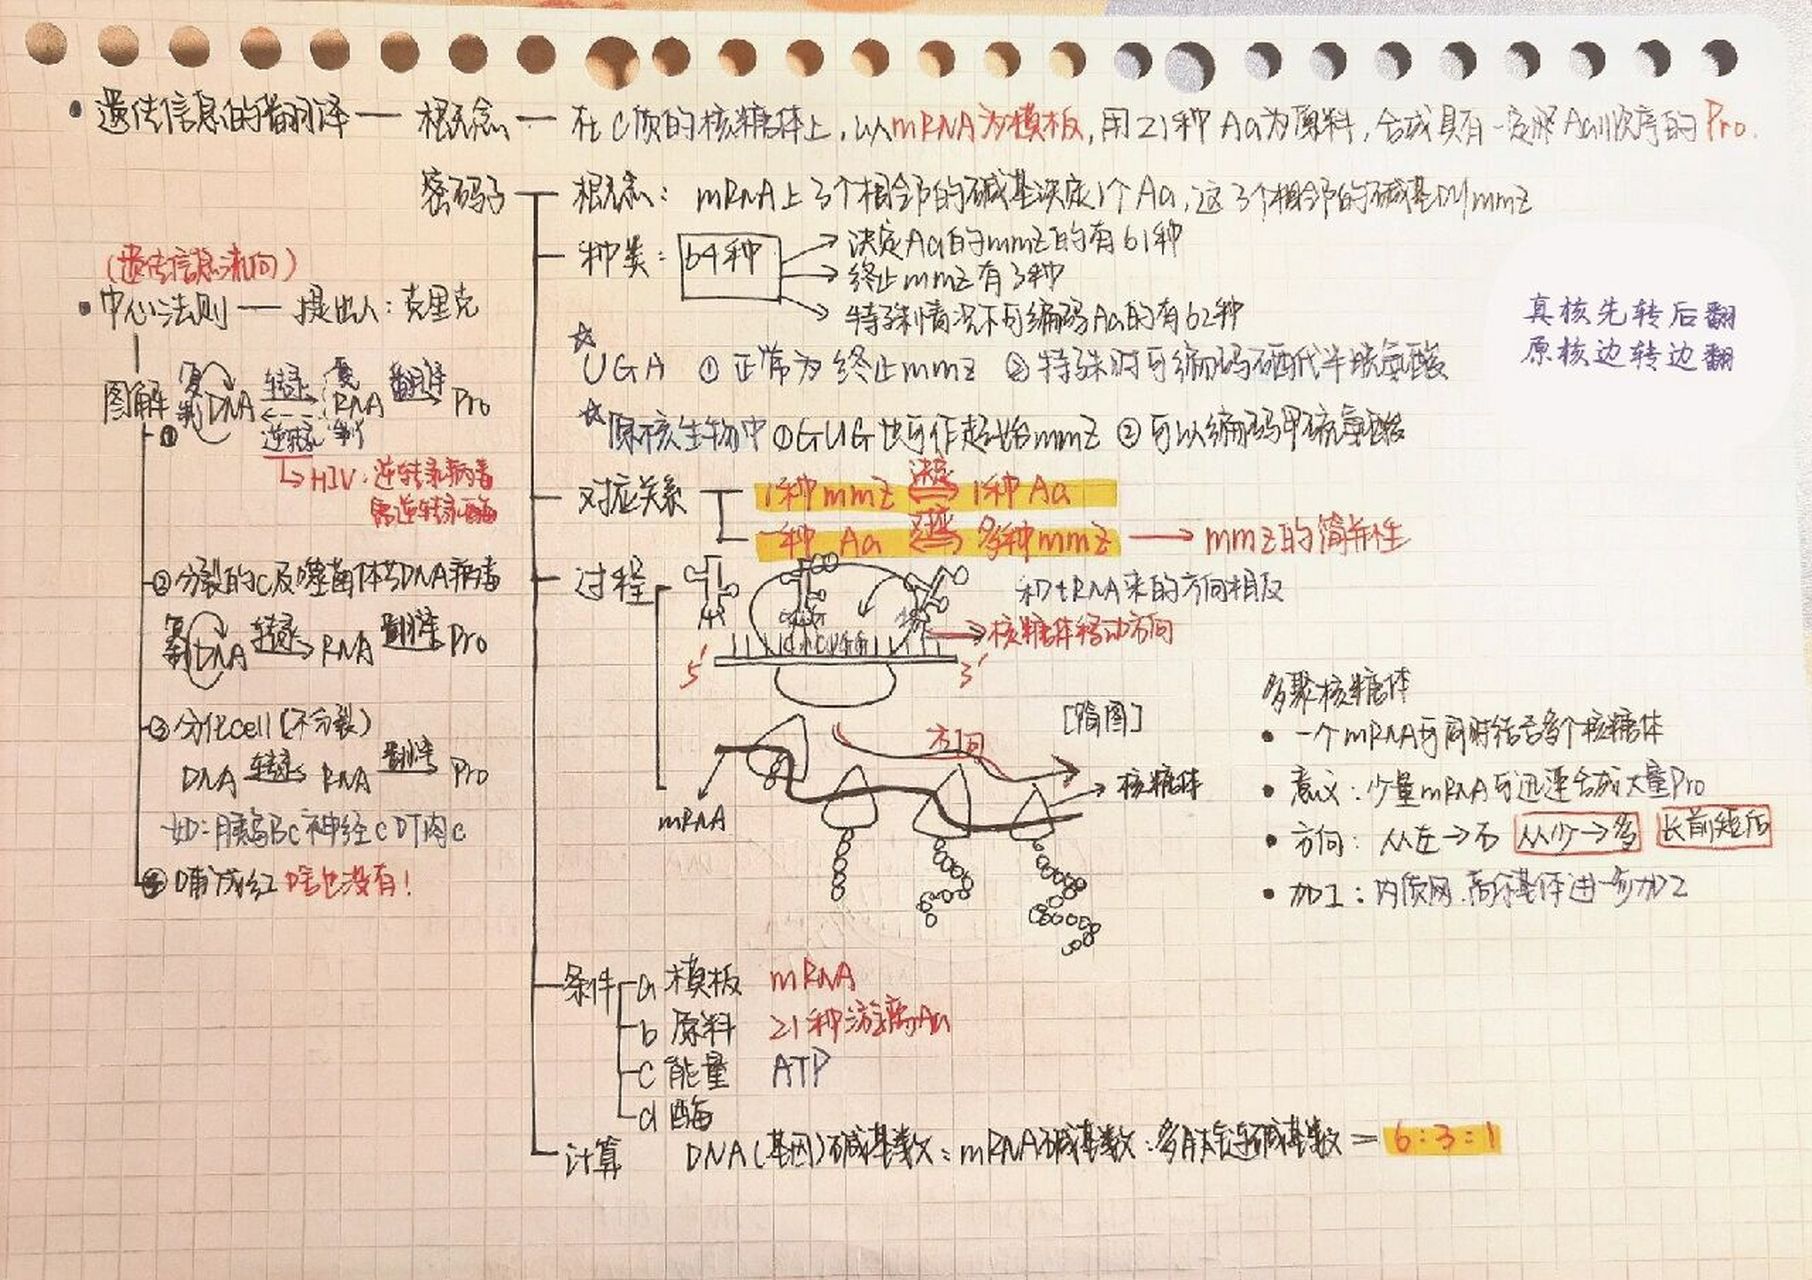 • 遗传信息的翻译 — 概念 — 在C质的核糖体上,以mRNA为模板,用21种Aa为原料,合成具有一定Aa顺序的Pro.
密码子 — 概念:mRNA上3个相邻的碱基决定1个Aa,这3个相邻的碱基叫mmz
种类:64种
→决定Aa的mmz的有61种
→终止mmz有3种
→特殊情况下可编码Aa的有62种
☆UGA ①正常为终止mmz ②特殊时可编码硒代半胱氨酸
☆原核生物中①GUG也可作起始mmz ②可以编码甲硫氨酸
真核先转后翻
原核边转边翻
对应关系
1种mmz 决定 1种Aa
一种Aa 对应 多种mmz → mmz的简并性
过程
和tRNA来的方向相反
→核糖体移动方向
5′ 3′
[简图]
方向
mRNA
核糖体
多聚核糖体
• 一个mRNA可同时结合多个核糖体
• 意义:少量mRNA可迅速合成大量Pro
• 方向:从左→右 从少→多 长前短后
• 加工:内质网.高尔基体进一步加工
条件
a 模板 mRNA
b 原料 21种游离Aa
c 能量 ATP
d 酶
计算 DNA(基因)碱基数:mRNA碱基数:多肽链碱基数=6:3:1
(遗传信息流向)
• 中心法则 — 提出人:克里克
图解
① 复制 DNA 转录 RNA 复制 翻译 Pro
逆转录
↳HIV:逆转录病毒
需逆转录酶
②分裂的C及噬菌体等DNA病毒
复制 DNA 转录 RNA 翻译 Pro
③分化cell(不分裂)
DNA 转录 RNA 翻译 Pro
如:胰岛Bc 神经c 肌肉c
④哺成红 啥也没有!